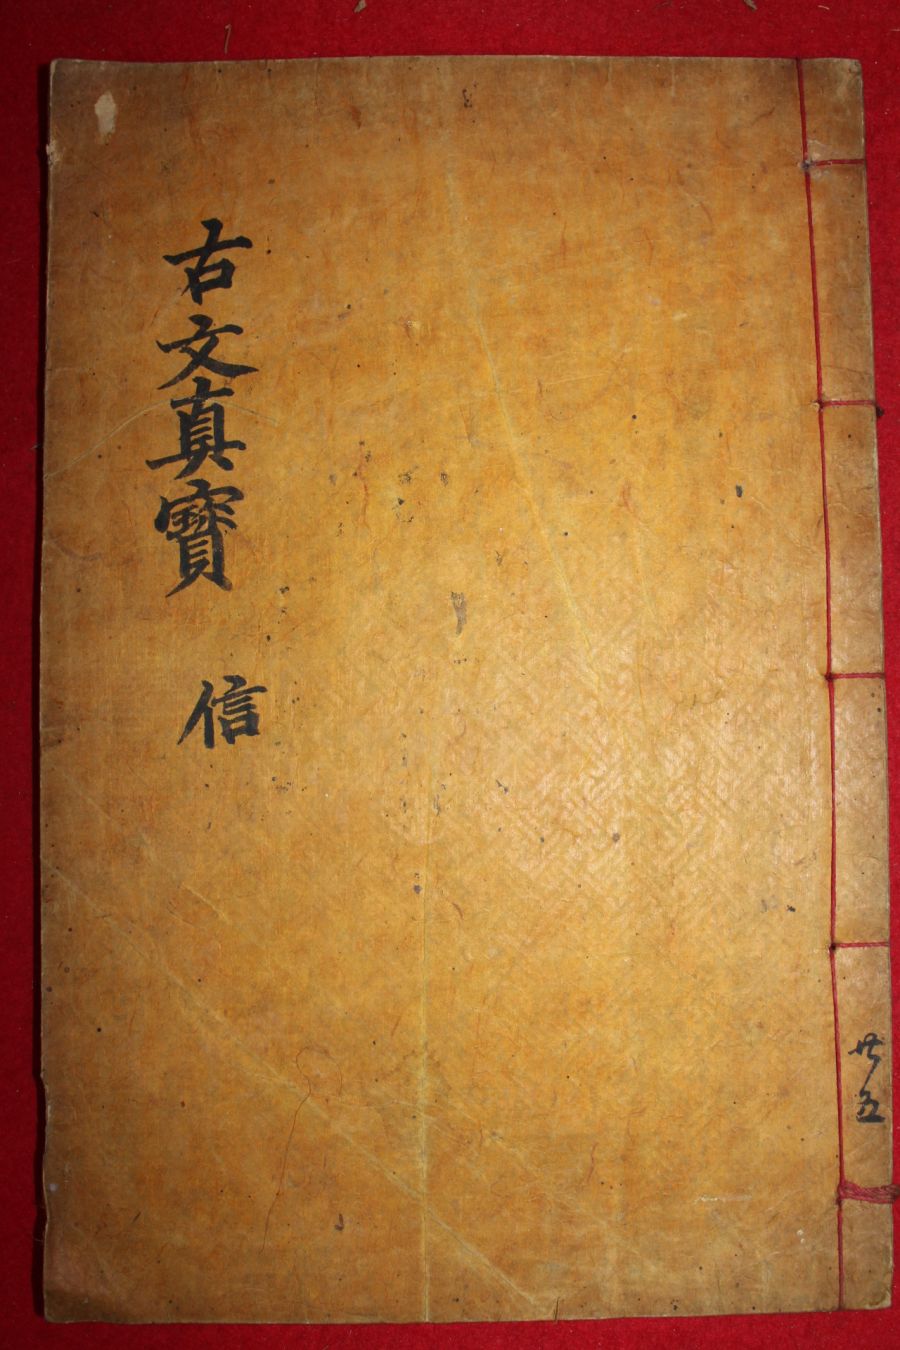 古文真寶 信
共五